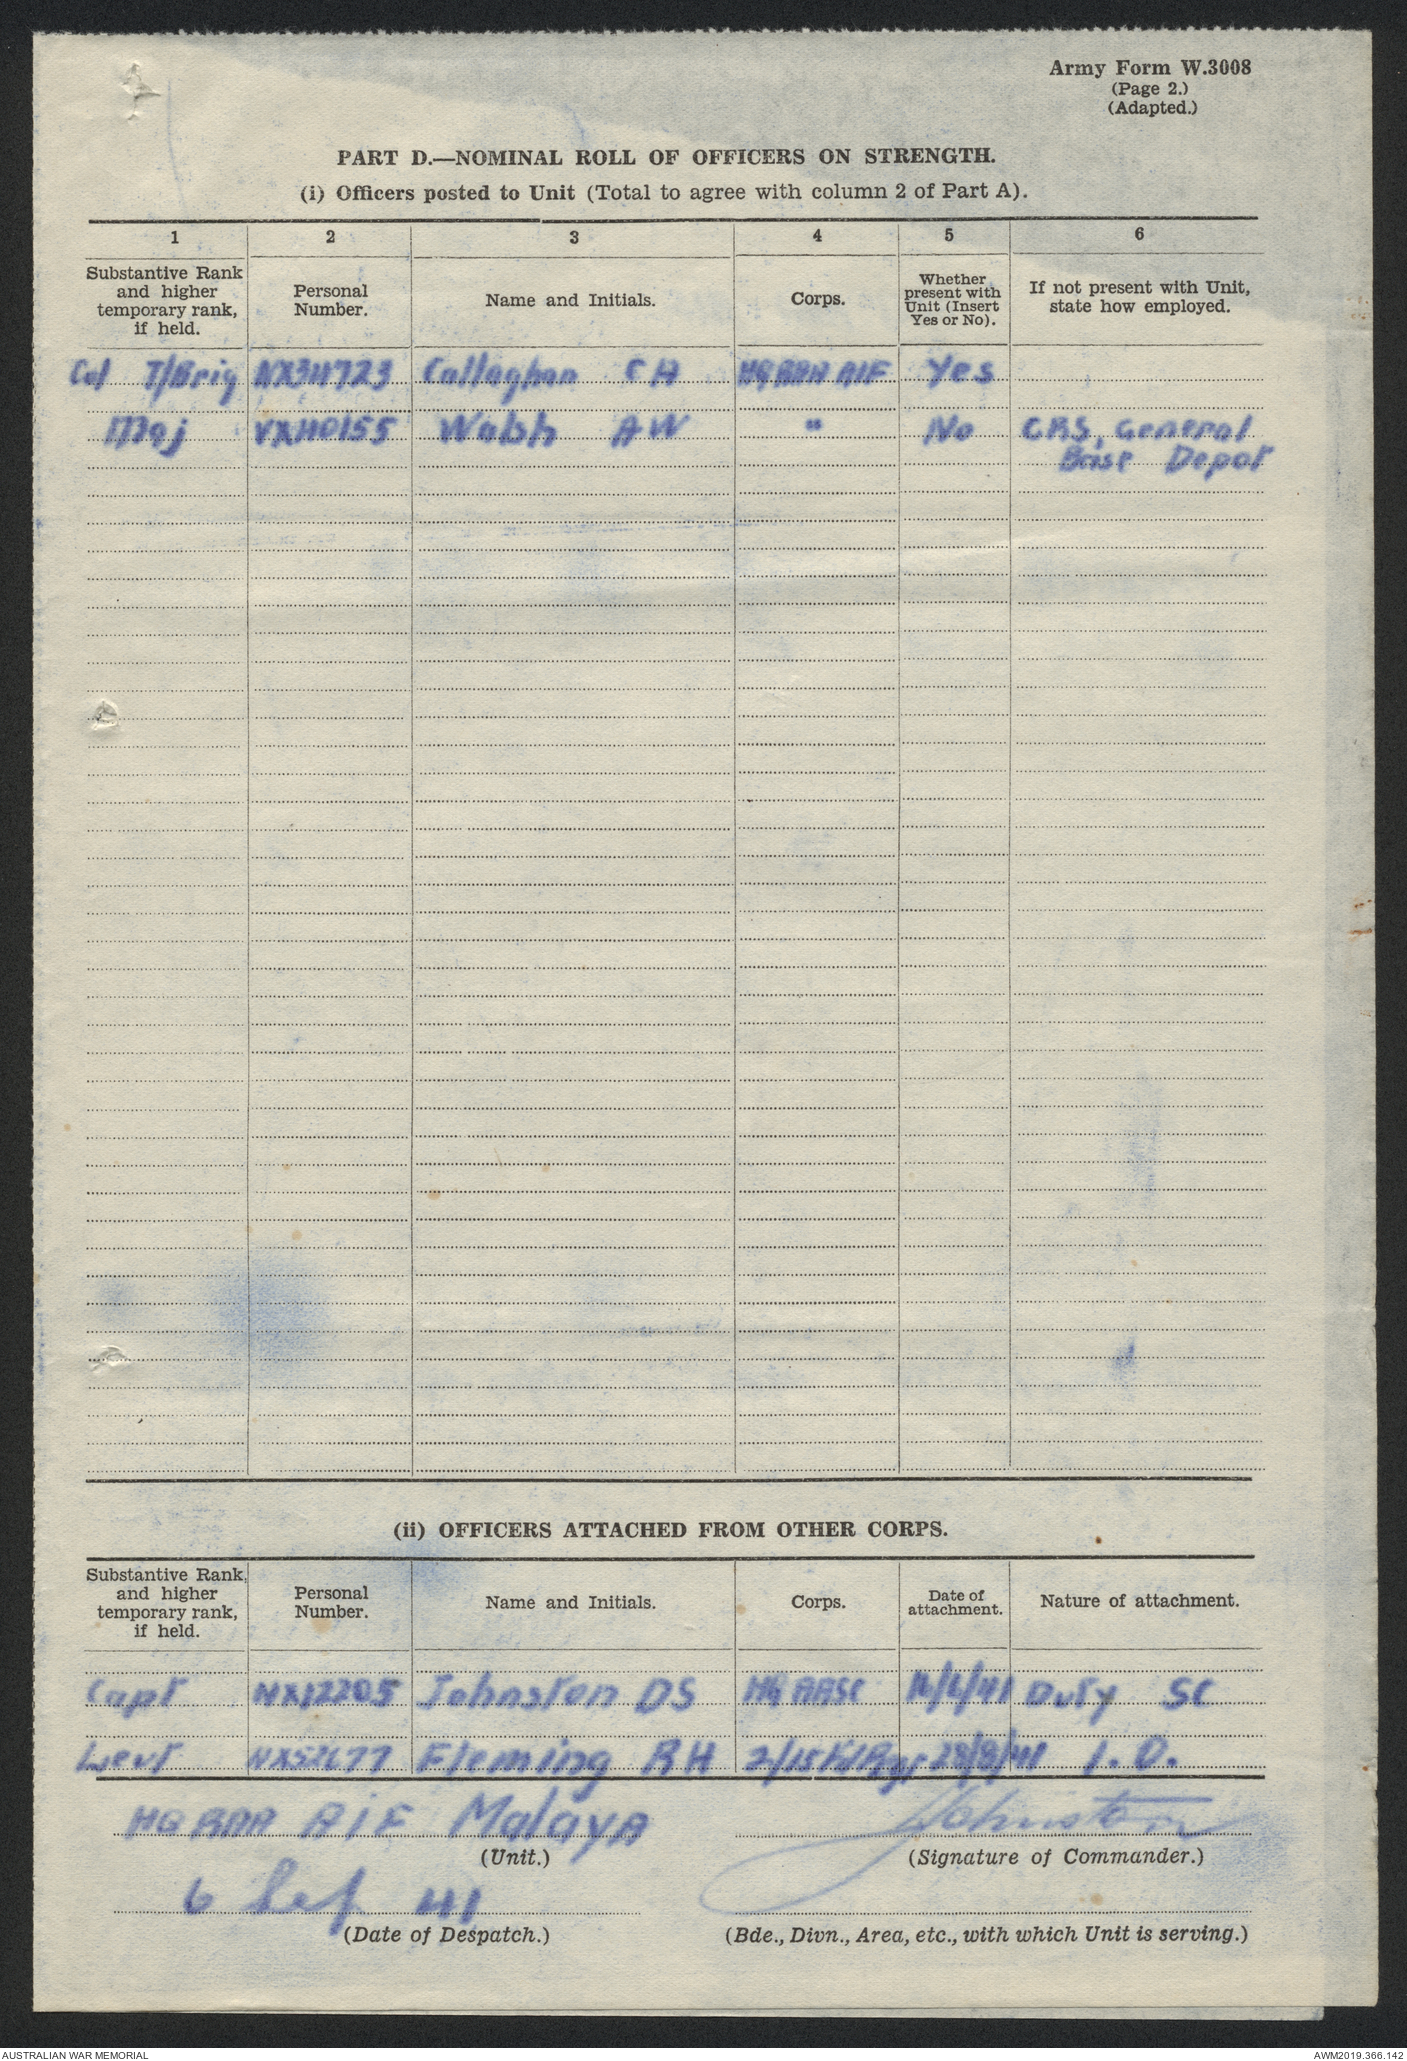 Army Form W.3008
(Page 2.)
(Adapted.)
PART D.—NOMINAL ROLL OF OFFICERS ON STRENGTH.
(i) Officers posted to Unit (Total to agree with column 2 of Part A).
1 2 3 4 5 6
Substantive Rank and higher temporary rank, if held.
Personal Number.
Name and Initials.
Corps.
Whether present with Unit (Insert Yes or No).
If not present with Unit, state how employed.
Col T/Brig NX34723 Callaghan CA HQ RAA AIF Yes
Maj VX40155 Walsh AW " No CRS, General
Base Depot
(ii) OFFICERS ATTACHED FROM OTHER CORPS.
Substantive Rank, and higher temporary rank, if held.
Personal Number.
Name and Initials.
Corps.
Date of attachment.
Nature of attachment.
Capt NX12205 Johnston DS HQ AASC 16/6/41 Duty SC
Lieut NX52677 Fleming RH 2/15 Fd Regt 28/8/41 I.O.
HQ RAA AIF Malaya Johnston
(Unit.) (Signature of Commander.)
6 Sep 41
(Date of Despatch.) (Bde., Divn., Area, etc., with which Unit is serving.)
AUSTRALIAN WAR MEMORIAL AWM2019.366.142